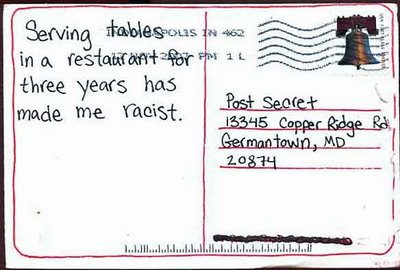 Serving tables
in a restaurant for
three years has
made me racist.
INDIANAPOLIS IN 462
PM 1 L
Post Secret
13345 Copper Ridge Rd
Germantown, MD
20874